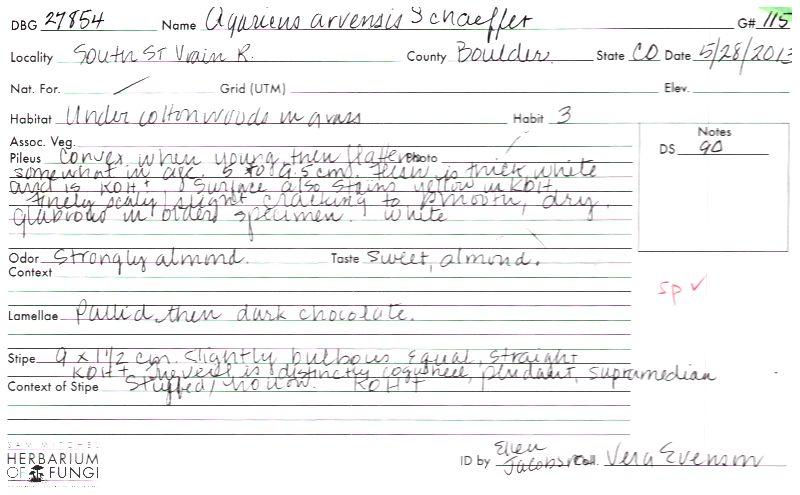 DBG 27854 Name Agaricus arvensis Schaeffer G# 115
Locality South St Vrain R. County Boulder State CO Date 5/28/2013
Nat. For. Grid (UTM) Elev.
Habitat Under cottonwoods in grass Habit 3
Notes
DS 90
Assoc. Veg.
Pileus Convex when young, then flattens Photo
somewhat in age. 5 to 9.5 cm. Flesh is thick, white
and is KOH+. Surface also stains yellow in KOH,
finely scaly, slight cracking to smooth, dry.
glabrous in older specimen. White
Odor Strongly almond. Taste Sweet, almond.
Context
sp ✓
Lamellae Pallid, then dark chocolate.
Stipe 9 x 1 1/2 cm. Slightly bulbous equal, straight
KOH+ is distinctly pendant, supramedian
Context of Stipe Stuffed, hollow. KOH+
SAM MITCHEL
HERBARIUM
OF FUNGI
ID by Ellen Jacobson Coll. Vera Evenson